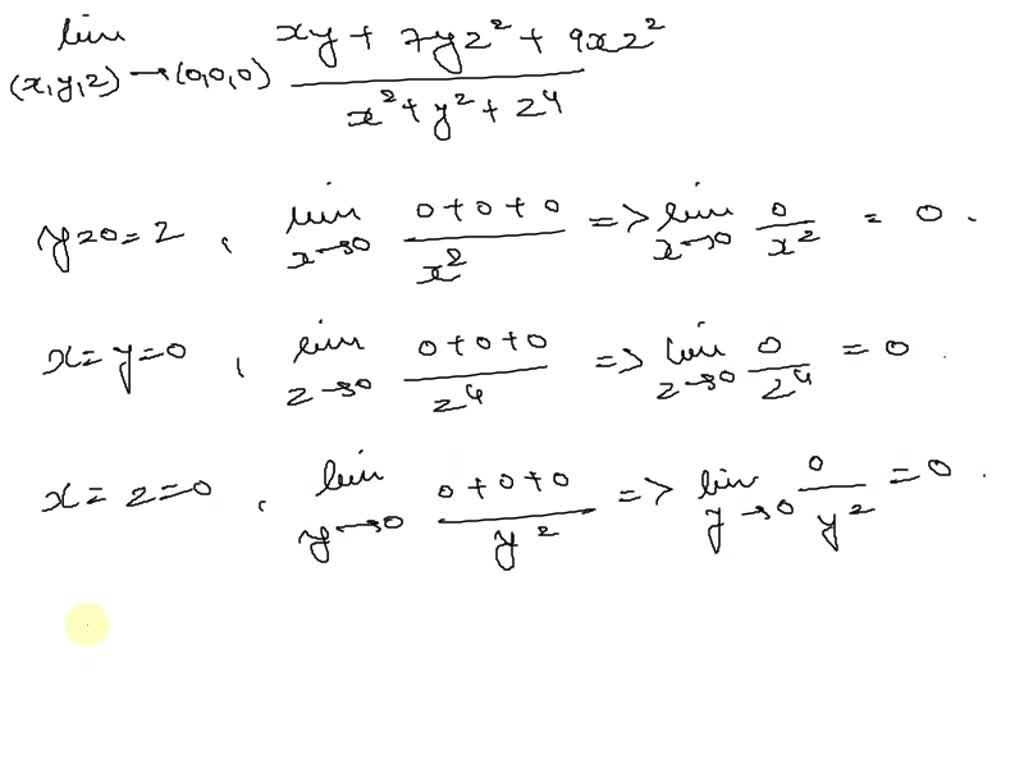 lim (x,y,z)→(0,0,0) xy + 7yz² + 9xz² / x² + y² + z⁴
y=0=z , lim x→0 0+0+0 / x² => lim x→0 0 / x² = 0 .
x=y=0 , lim z→0 0+0+0 / z⁴ => lim z→0 0 / z⁴ = 0 .
x=z=0 , lim y→0 0+0+0 / y² => lim y→0 0 / y² = 0 .